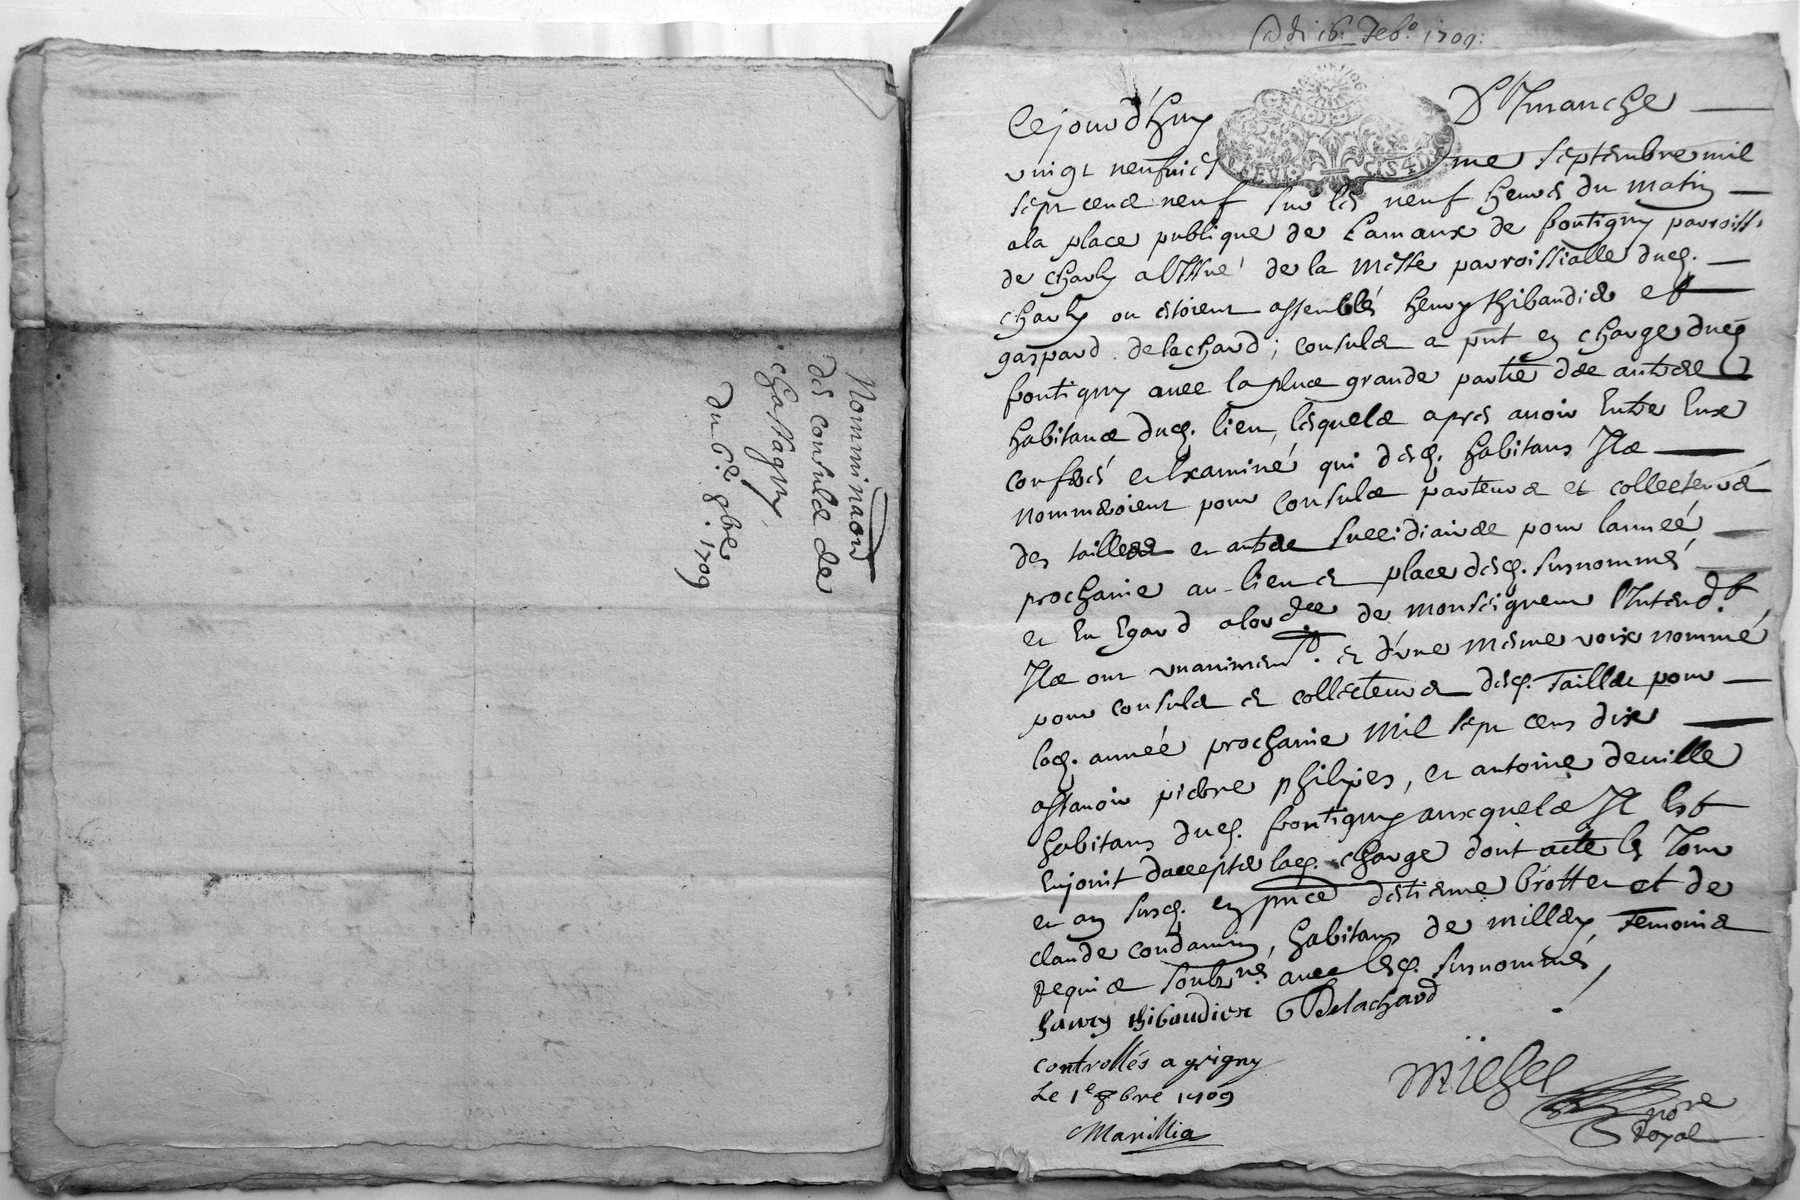 Nomminaon
des consuls de
chassagny
du 6e. 8bre
1709
Adi 16. Feb.o 1709:
Cejourd'huy Dimanche
vingt neufuies me septembre mil
sept cens neuf sur les neuf heures du matin
a la place publique de Larnaux de fontigny parroiss.
de charly a lissue de la Messe parroissialle dud.
charly ou estoient assemblés henry thibaudier et
gaspard delachard; consuls a pnt en charge dud.
fontigny auec la plus grande partie des autres
habitans dud. lieu, lesquels apres auoir entre eux
conferé et examiné qui desd. habitans Ils
nommeroient pour consuls parteurs et collecteurs
des tailles et autres succidiaires pour lannéé
prochaine au lieu et place desd. susnommés
et en Egard a lordce de monseigneur l'Intendt.
Ils ont vnanimemt. et d'vne mesme voix nommé
pour consuls et collecteurs desd. Tailles pour
lad. année prochaine Mil sept cens dix
assauoir pierre philipes, et antoine deuille
habitans dud. fontigny auxquels Il Est
Enjoint daccepter lad. charge dont acte les Jour
et an susd. en pnce destienne brottet et de
claude condamin, habitans de millery Temoins
Requis soubznés auec lesd. susnommés,
henry thibaudier G Delachard
controllés a grigny
Le 1e 8bre 1709
Marillia
Michel
nore
Royal